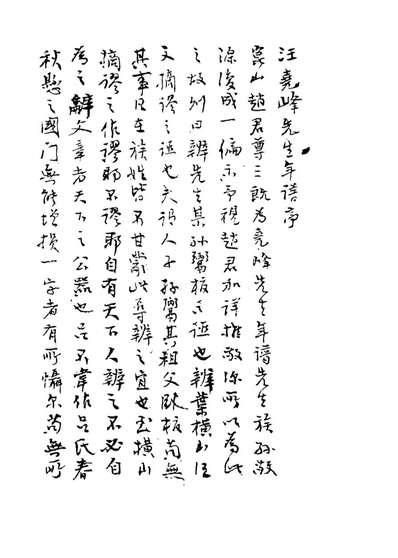 汪堯峰先生年譜序
崑山趙君尊三既為堯峰先生年譜先生族孫敬
源復成一偏示予視趙君加詳推敬源所以為此
之故則曰辨先生某孫鬻板之誣也辨葉橫山汪
文摘謬之誣也夫謂人子孫鬻其祖父板苟無
其事凡在族姓皆不甘蒙此辱辨之宜也至橫山
摘謬之作謬耶不謬耶自有天下人辨之不必自
為之辭文章者天下之公器也呂不韋作呂氏春
秋懸之國門無能增損一字者有所懾尔苟無所